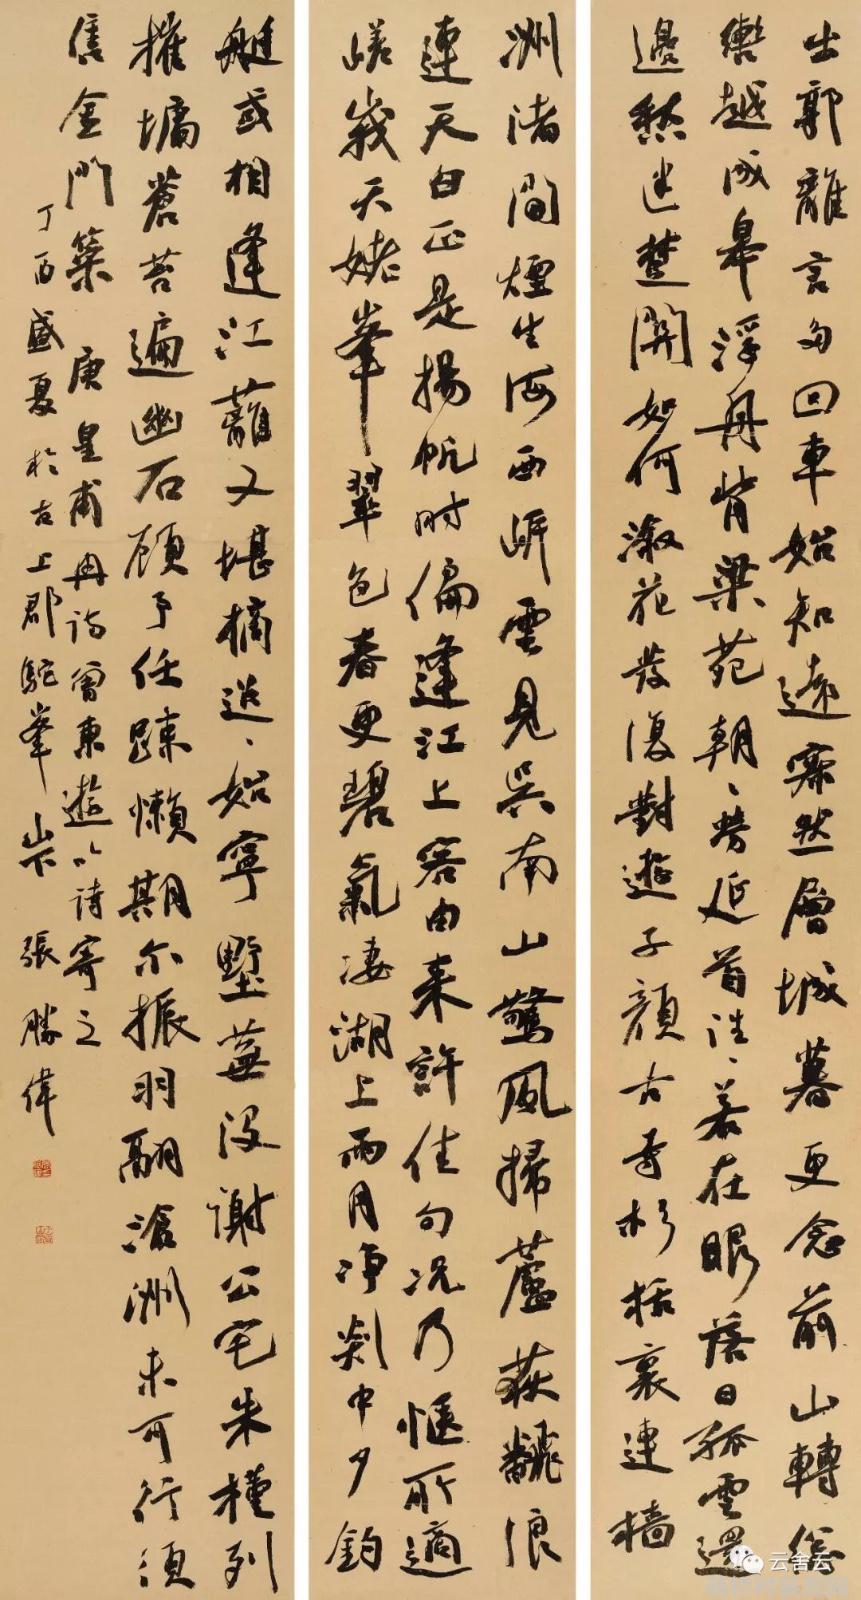 出郭離言多回車始知遠寂然層城暮更念前山轉總
轡越成皋浮舟背梁苑朝〻勞延首往〻若在眼落日孤雲還
邊愁迷楚關如何溆花發復對遊子顏古寺杉栝裏連檣
洲渚間煙生海西岸雲見吳南山驚風掃蘆荻翻浪
連天白正是揚帆時偏逢江上客由來許佳句況乃愜所適
嵯峩天姥峯翠色春更碧氣凄湖上雨月淨剡中夕釣
艇或相逢江蘺又堪摘迢〻始寧墅蕪沒謝公宅朱槿列
摧墉蒼苔遍幽石顧予任疎懶期尔振羽翮滄洲未可行須
售金門策 唐皇甫冉詩曾東遊以詩寄之
丁酉盛夏於古上郡駝峯山下 張勝偉
云舍云